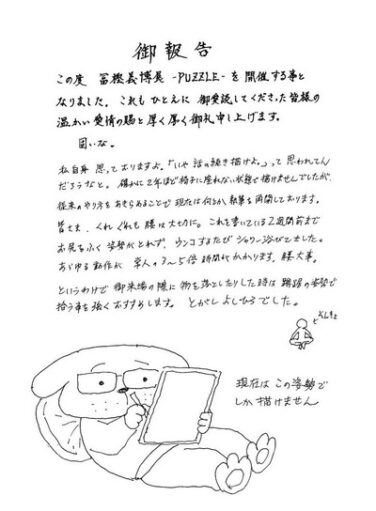 御報告
この度 冨樫義博展 -PUZZLE- を開催する事と
なりました。これもひとえに 御愛読してくださった皆様の
温かい愛情の賜と厚く厚く御礼申し上げます。
固いな。
私自身 思っておりますよ。「いや 話の続き描けよ。」って思われてん
だろうなと。確かに2年ほど椅子に座れない状態で描けませんでしたが、
従来のやり方をあきらめることで現在は何とか執筆を再開しております。
皆さま、くれぐれも腰は大切に。これを書いている2週間前まで
お尻をふく姿勢がとれず、ウンコするたびシャワー浴びてました。
あらゆる動作が 常人の3〜5倍時間がかかります。腰大事。
というわけで 御来場の際に物を落としたりした時は 蹲踞の姿勢で
拾う事を強くおすすめします。とがしよしひろでした。
そんきょ
現在はこの姿勢で
しか描けません